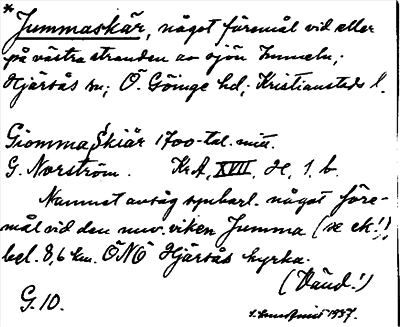 * Jummaskär, något föremål vid eller
på västra stranden av sjön Immeln;
Hjärsås sn; Ö. Göinge hd; Kristianstads l.
Giomma Skiär 1700-tal. mitt.
G. Norström. KrA, XVIII, H, 1. b.
Namnet avsåg synbarl. något före-
mål vid den nuv. viken Jumma (se ek!),
bel. 8,6 km. ÖNÖ Hjärsås kyrka.
(Vänd!)
G. 10. 1937.